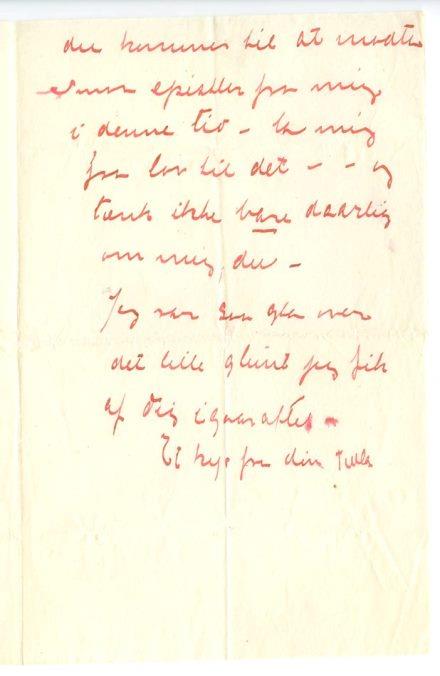 du kommer til at modta
epistler fra mig
i denne tid – la mig
faa lov til det – – og
tænk ikke bare daarlig
om mig, du –
Jeg var saa gla over
det lille glimt jeg fik
af dig igaaraftes –
Et kys fra din Tulla